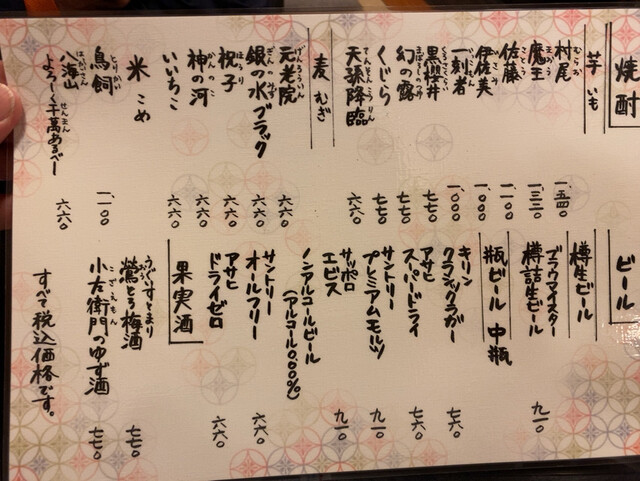 焼酎
芋 いも
村尾 むらお 一、五四〇
魔王 まおう 一、三二〇
佐藤 さとう 一、一〇〇
伊佐美 いさみ 一、〇〇〇
一刻者 いっこもん 一、〇〇〇
黒櫻井 くろさくらい 七七〇
幻の露 まぼろしのつゆ 七七〇
くじら 七七〇
天孫降臨 てんそんこうりん 六六〇
麦 むぎ
元老院 げんろういん 六六〇
銀の水ブラック ぎんのみず 六六〇
祝子 ほうり 六六〇
神の河 かんのこ 六六〇
いいちこ 六六〇
米 こめ
鳥飼 とりかい 一、一〇
八海山 はっかいさん
よろしく千萬あるべし せんまん 六六〇
ビール
樽生ビール
ブラウマイスター
樽詰生ビール 九一〇
瓶ビール 中瓶
キリン
クラシックラガー 七六〇
アサヒ
スーパードライ 七六〇
サントリー
プレミアムモルツ 九一〇
サッポロ
エビス 九一〇
ノンアルコールビール
(アルコール0.00%)
サントリー
オールフリー 六六〇
アサヒ
ドライゼロ 六六〇
果実酒
鶯とろ梅酒 うぐいすとまり 七七〇
小左衛門のゆず酒 こざえもん 七七〇
すべて税込価格です。